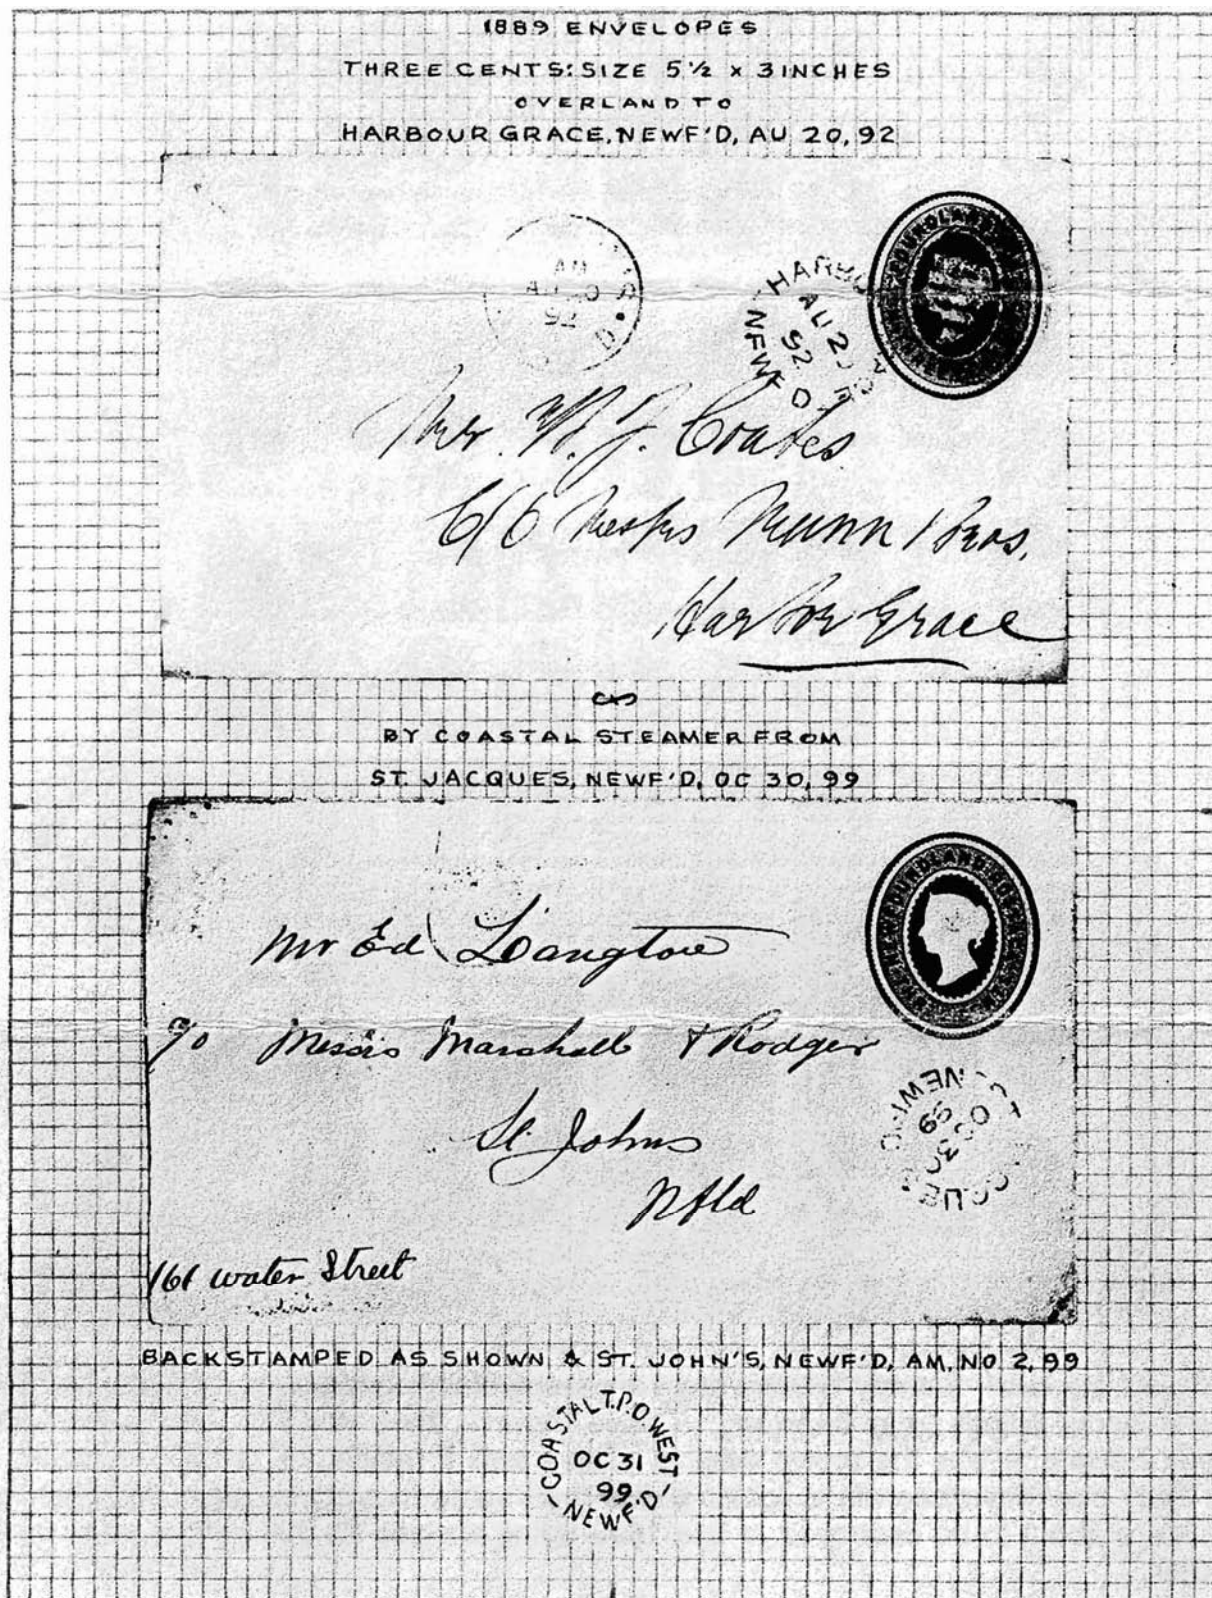 1889 ENVELOPES
THREE CENTS: SIZE 5½ x 3 INCHES
OVERLAND TO
HARBOUR GRACE, NEWF'D, AU 20, 92
AM
AU 20
92
HARBO
AU 20
92
NEWF'D
Mr. W. J. Coates
C/O Messrs Munn & Bros.
Harbor Grace
BY COASTAL STEAMER FROM
ST. JACQUES, NEWF'D, OC 30, 99
NEWFOUNDLAND
Mr Ed Langtow
c/o Messrs Marshall & Rodger
St Johns
Nfld
161 water Street
NEWF'D
OC 30
99
BACKSTAMPED AS SHOWN & ST. JOHN'S, NEWF'D, AM, NO 2, 99
COASTAL T.P.O. WEST
OC 31
99
NEWF'D